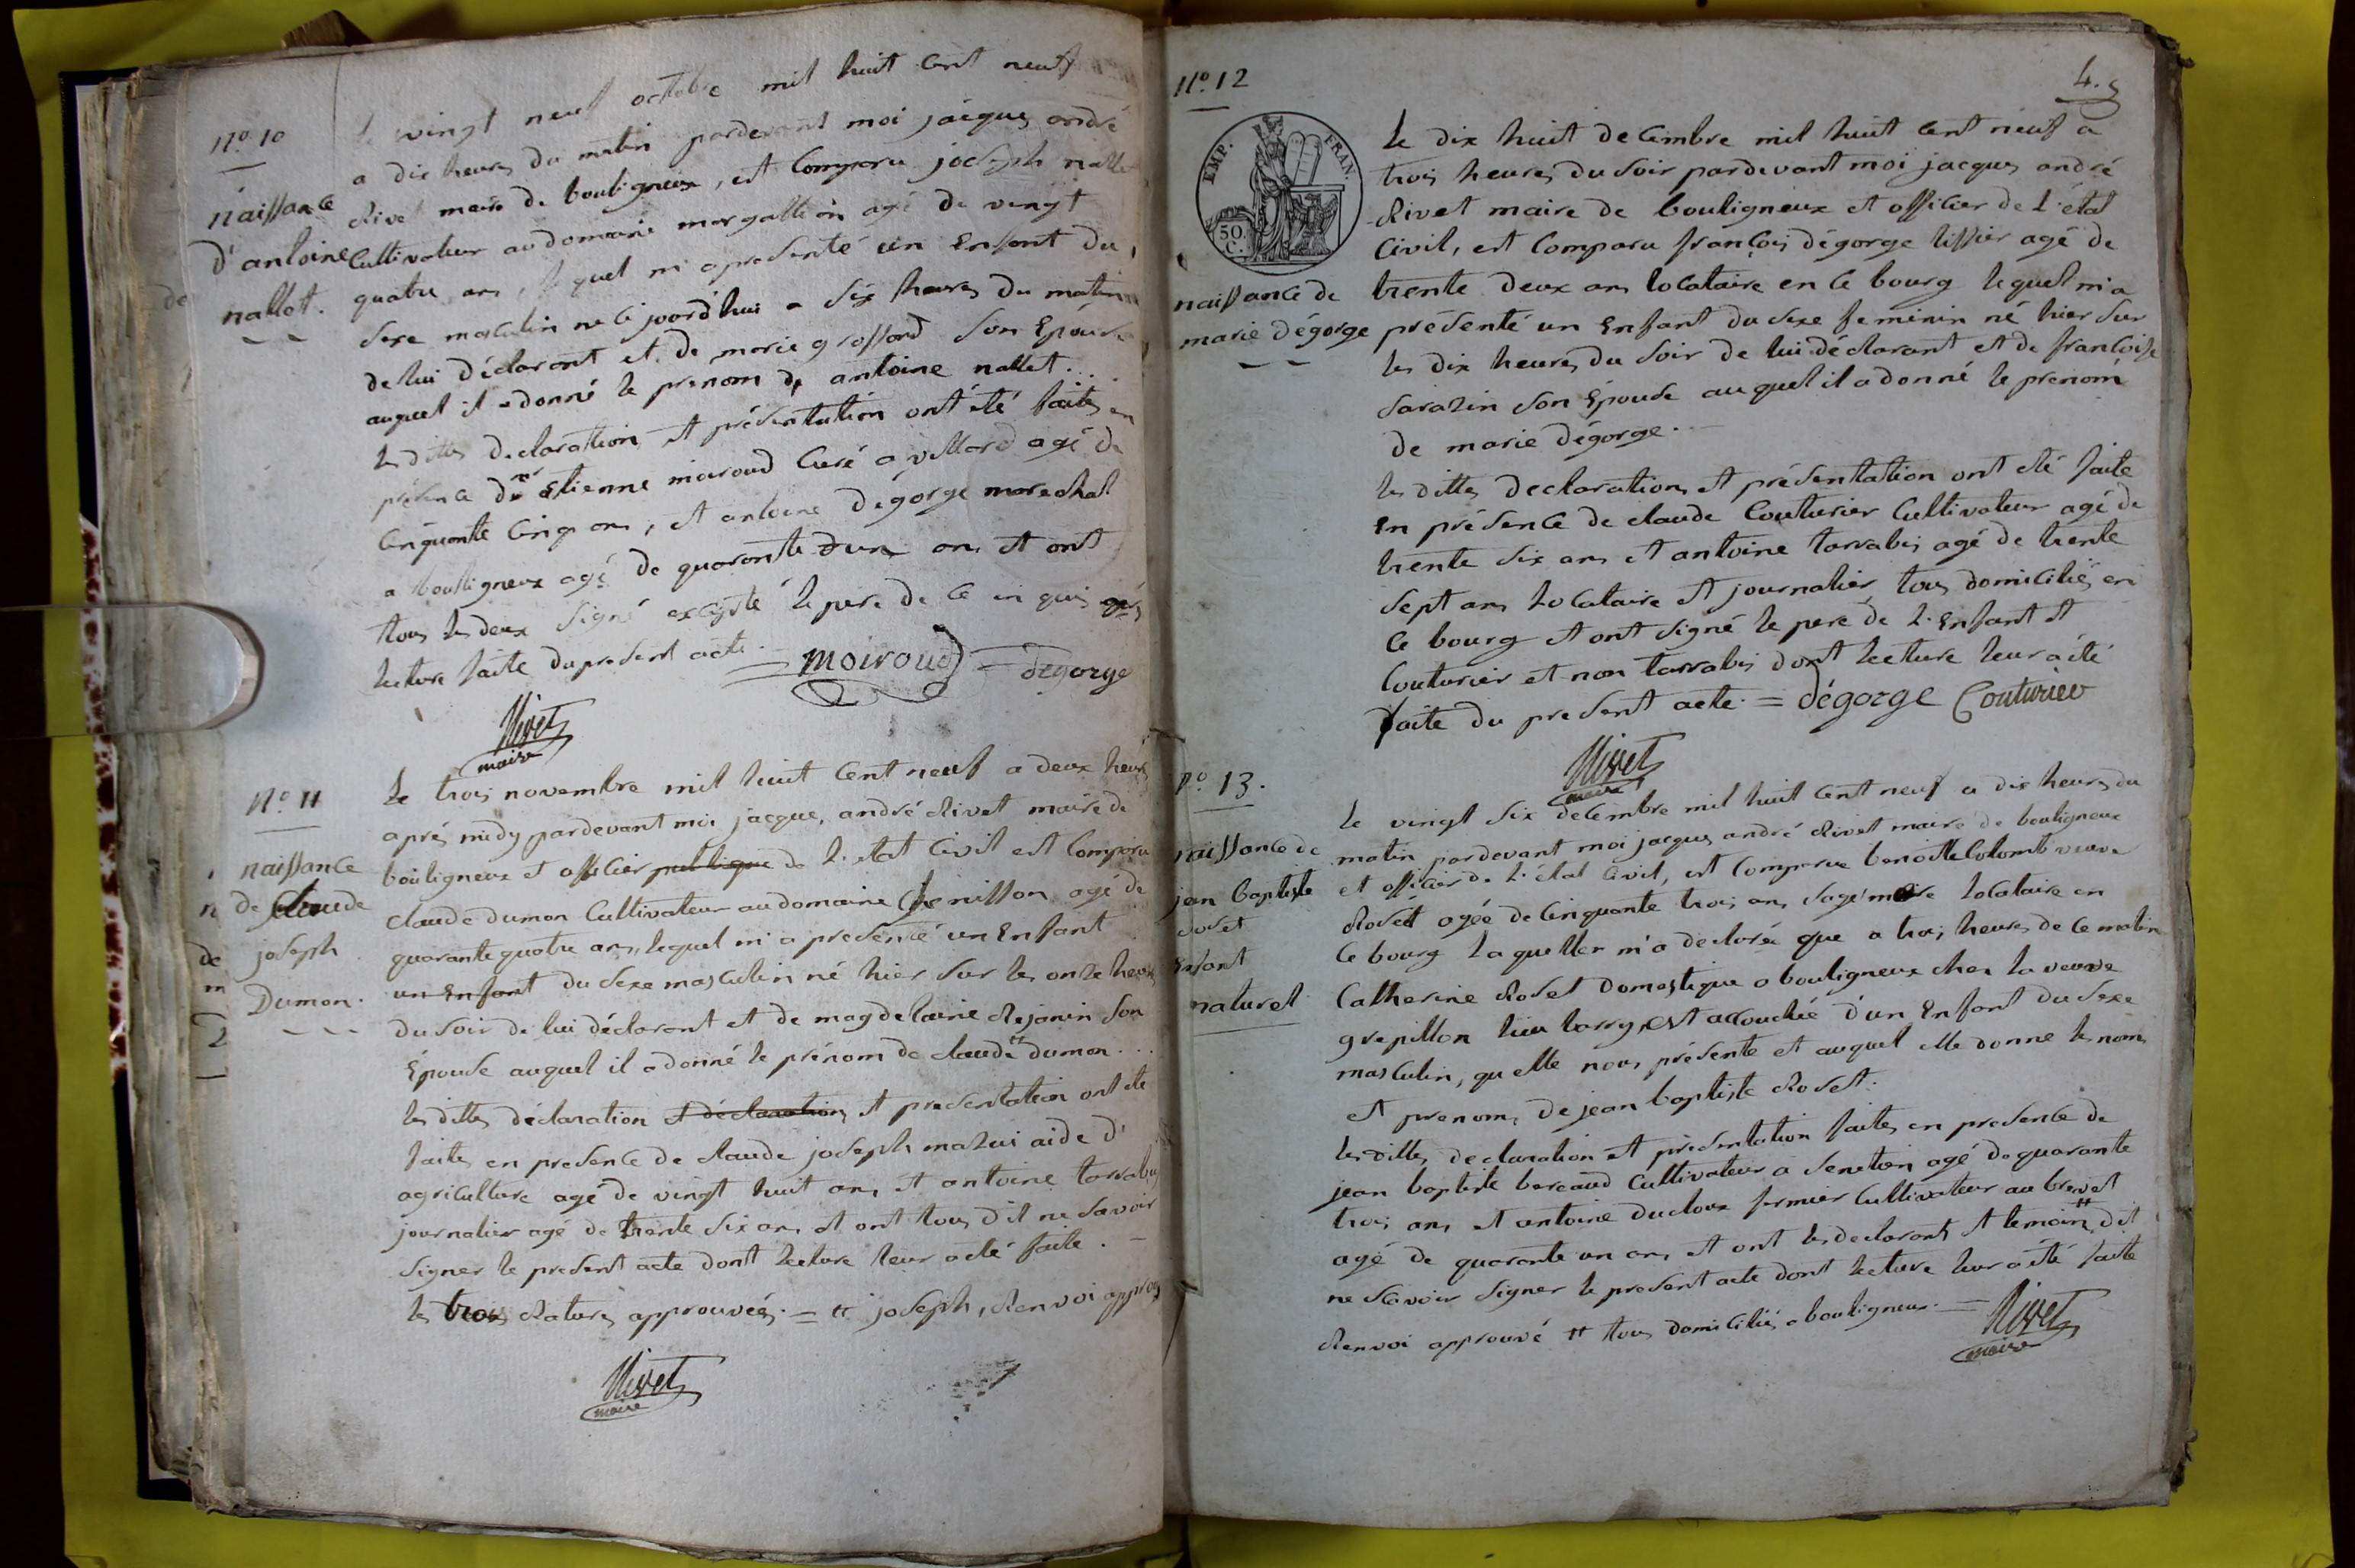 N.o 10
naissance
d'antoine
nallet.
Le vingt neuf octobre mil huit cent neuf
a dix heures du matin pardevant moi jacques andré
Rivet maire de bouligneux, est comparu joseph nallet
cultivateur au domaine morgallion agé de vingt
quatre ans, lequel m'a presenté un Enfant du
sexe masculin né ce jourd'hui a six heures du matin
de lui déclarant et de marie grossard son Epouse
auquel il a donné le prénom de antoine nallet...
les dittes declaration et présentation ont été faites en
présence de mr Etienne moiroud curé a villard agé de
cinquante cinq ans, et antoine dégorge marechal
a bouligneux agé de quarante d'un ans et ont
tous les deux signé excepté le pere de ce enquis après
lecture faite du present acte. = moiroud = degorge
Rivet
maire
N.o 11
naissance
de Claude
joseph
Dumon.
Le trois novembre mil huit cent neuf a deux heures
après midy pardevant moi jacques andré Rivet maire de
bouligneux et officier publique de l'etat civil est comparu
claude dumon cultivateur au domaine chenisson agé de
quarante quatre ans, lequel m'a presenté un Enfant
un Enfant du sexe masculin né hier sur les onze heures
du soir de lui déclarant et de magdelaine Rejanin son
Épouse auquel il a donné le prénom de claude # dumon....
les dittes déclaration et déclaration et presentation ont été
faites en presence de claude joseph mazui aide d'
agriculture agé de vingt huit ans et antoine tarrabis
journalier agé de trente six ans et ont tous dit ne savoir
signer le present acte dont lecture leur a été faite. -
les trois Ratures approuvées. = # joseph, Renvoi approuvé
Rivet
maire
N.o 12
4.
EMP. FRAN.
50 C.
naissance de
marie dégorge
Le dix huit decembre mil huit cent neuf a
trois heures du soir pardevant moi jacques andré
Rivet maire de bouligneux et officier de l'état
civil, est comparu françois dégorge tissier agé de
trente deux ans locataire en ce bourg lequel m'a
présenté un Enfant du sexe feminin né hier sur
les dix heures du soir de lui déclarant et de françoise
sarazin son Épouse auquel il a donné le prenom
de marie dégorge. -
les dittes declaration et présentation ont été faite
En présence de claude Couturier cultivateur agé de
trente six ans et antoine tarrabis agé de trente
sept ans locataire et journalier, tous domiciliés en
ce bourg et ont signé le pere de l'Enfant et
Couturier et non tarrabis dont lecture leur a été
faite du present acte. = dégorge Couturier
Rivet
maire
N.o 13.
naissance de
jean baptiste
Roset
Enfant
naturel
Le vingt six decembre mil huit cent neuf a dix heures du
matin pardevant moi jacques andré Rivet maire de bouligneux
et officier de l'etat civil, est comparue benoitte Colomb veuve
Roset agée de cinquante trois ans sage mere locataire en
ce bourg laquelle m'a declarée que a trois heures de ce matin
Catherine Roset domestique a bouligneux chez la veuve
grepillon lieu larry, est accouchée d'un Enfant du sexe
masculin, qu'elle nous présente et auquel elle donne les noms
et prenoms de jean baptiste Roset.
les dittes declaration et présentation faites en presence de
jean baptiste bereaud cultivateur a senetion agé de quarante
trois ans et antoine ducloux fermier cultivateur au brevet
agé de quarante un ans et ont les declarants et temoins # dit
ne scavoir signer le present acte dont lecture leur a été faite
Renvoi approuvé # tous domiciliés a bouligneux. = Rivet
maire